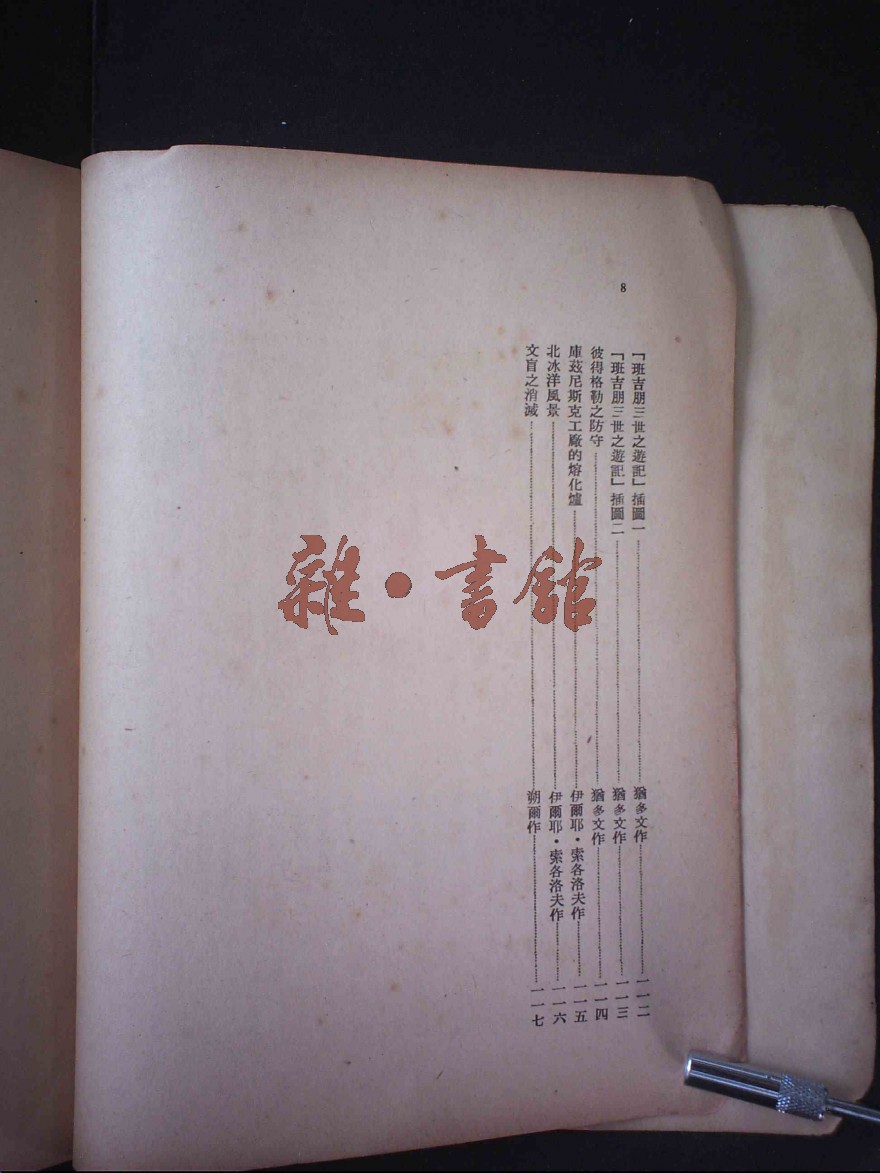 8
「班吉朋三世之遊記」插圖一……猶多文作……一一二
「班吉朋三世之遊記」插圖二……猶多文作……一一三
彼得格勒之防守……猶多文作……一一四
庫茲尼斯克工廠的熔化爐……伊爾耶·索各洛夫作……一一五
北冰洋風景……伊爾耶·索各洛夫作……一一六
文盲之消滅……朔爾作……一一七
雜·書館